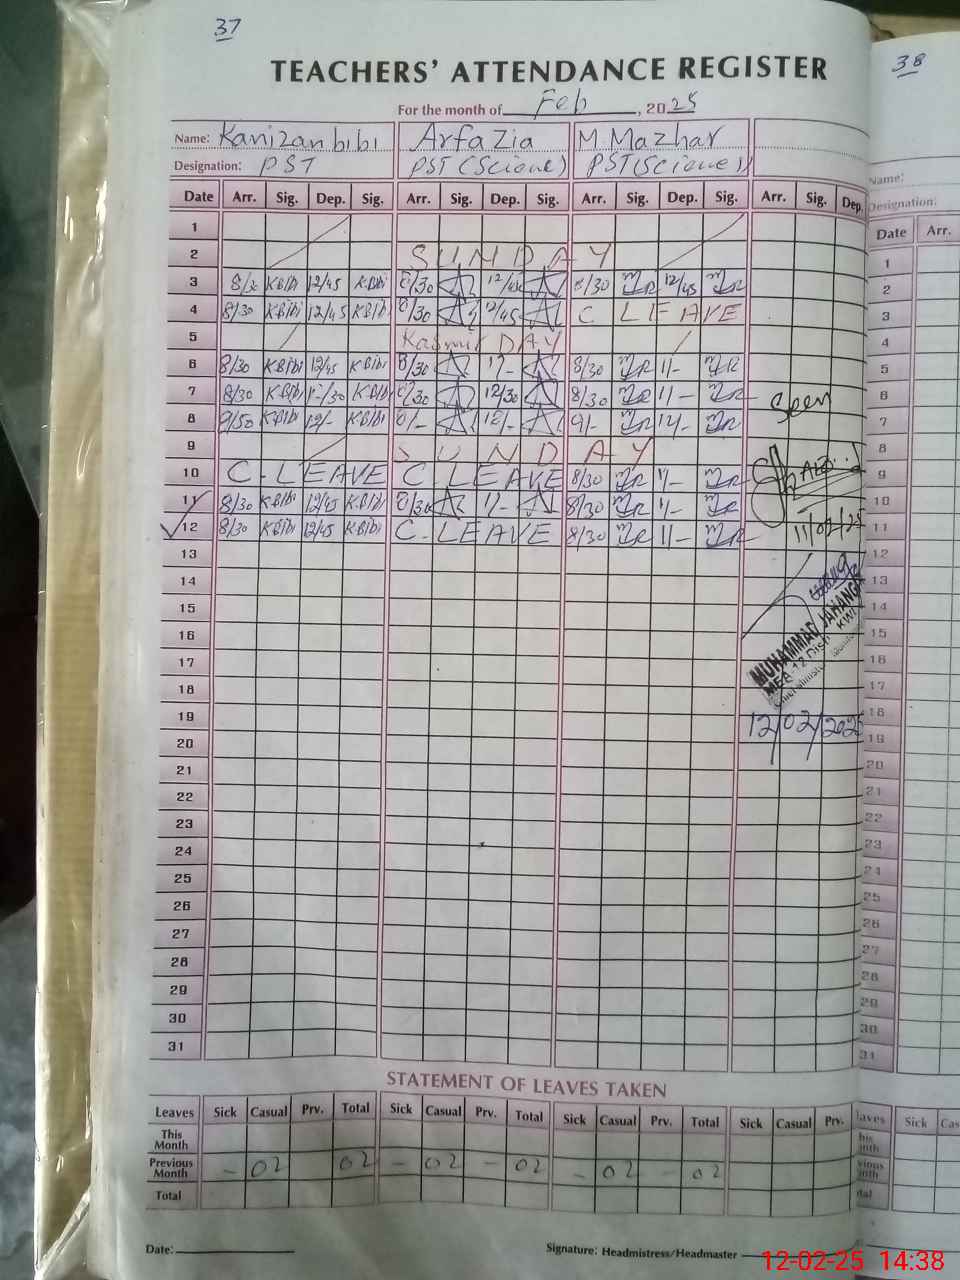 37
38
TEACHERS' ATTENDANCE REGISTER
For the month of Feb, 2025
Name: Kanizan bibi Arfa Zia M. Mazhar
Designation: PST PST (Science) PST (Science)
Date Arr. Sig. Dep. Sig. Arr. Sig. Dep. Sig. Arr. Sig. Dep. Sig. Arr. Sig. Dep.
1
2 SUNDAY
3 8/30 K.Bibi 12/45 K.Bibi 8/30 12/45 8/30 12/45
4 8/30 K.Bibi 12/45 K.Bibi 8/30 12/45 C LEAVE
5 Kasmir DAY
6 8/30 K.Bibi 12/45 K.Bibi 8/30 1/- 8/30 1/-
7 8/30 K.Bibi K.Bibi 8/30 12/30 8/30 1/-
8 K.Bibi 12/- K.Bibi 12/- 9/- 12/-
9 SUNDAY
10 C-LEAVE C LEAVE 8/30 1/-
11 8/30 K.Bibi 12/45 K.Bibi 8/30 1/- 8/30 1/-
12 8/30 K.Bibi 12/45 K.Bibi C-LEAVE 8/30 1/-
13
14
15
16
17
18
19
20
21
22
23
24
25
26
27
28
29
30
31
Seen
11/02/25
MUHAMMAD JAHANG
MEA 12 Distt KW
12/02/2025
STATEMENT OF LEAVES TAKEN
Leaves Sick Casual Prv. Total Sick Casual Prv. Total Sick Casual Prv. Total Sick Casual Prv.
This Month
Previous Month - 02 02 - 02 - 02 - 02 - 02
Total
Date:
Signature: Headmistress/Headmaster
Name:
Designation:
Date Arr.
1
2
3
4
5
6
7
8
9
10
11
12
13
14
15
16
17
18
19
20
21
22
23
24
25
26
27
28
29
30
31
Sick
12-02-25 14:38